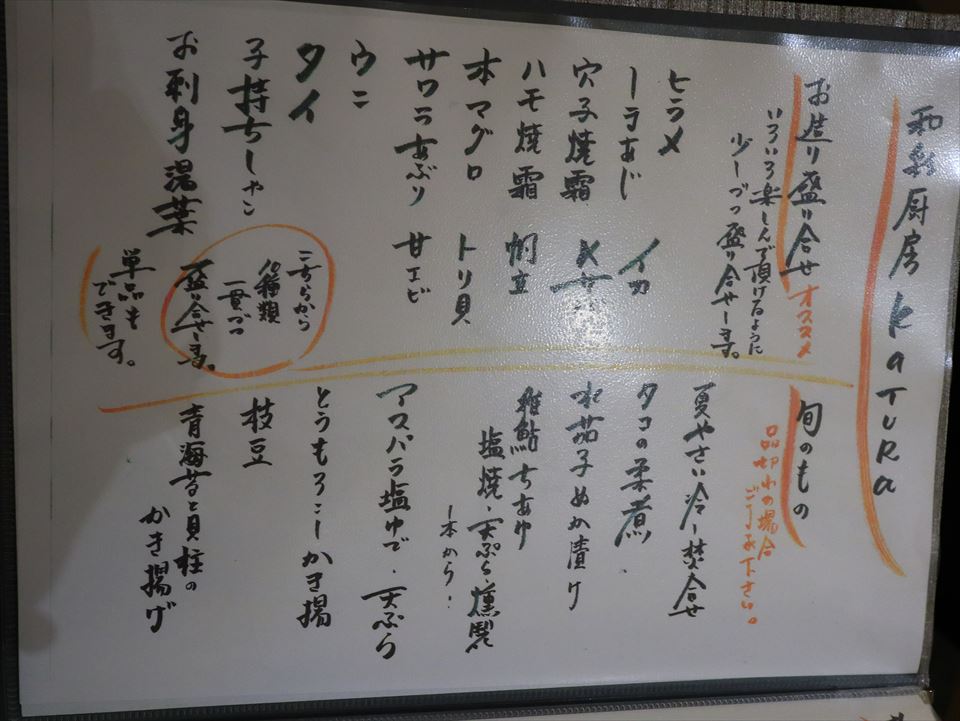 和彩厨房 KaTURa
お造り盛り合せ オススメ
いろいろ楽しんで頂けるように
少しづつ盛り合せします。
ヒラメ
しまあじ イカ
穴子焼霜
ハモ焼霜 帆立
本マグロ トリ貝
サワラあぶり 甘エビ
ウニ
タイ
子持ちしゃこ
お刺身湯葉
こちらから
八種類
一貫づつ
盛り合せます。
単品も
できます。
旬のもの
品切れの場合
ご了承下さい。
夏やさい冷し焚合せ
タコの柔煮
水茄子ぬか漬け
稚鮎ちあゆ
塩焼・天ぷら・燻製
一本から・
アスパラ塩ゆで・天ぷら
とうもろこしかき揚
枝豆
青海苔と貝柱の
かき揚げ